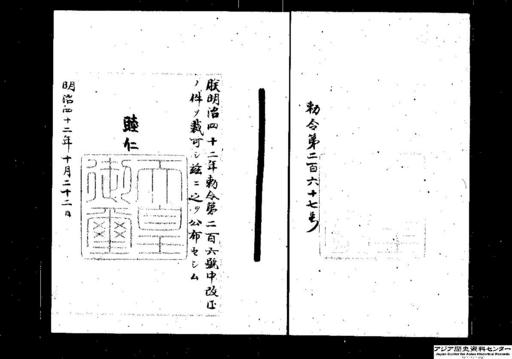 勅令第二百六十七号
朕明治四十二年勅令第二百六號中改正
ノ件ヲ裁可シ茲ニ之ヲ公布セシム
睦仁
天皇
御璽
明治四十二年十月二十二日
アジア歴史資料センター
Japan Center for Asian Historical Records